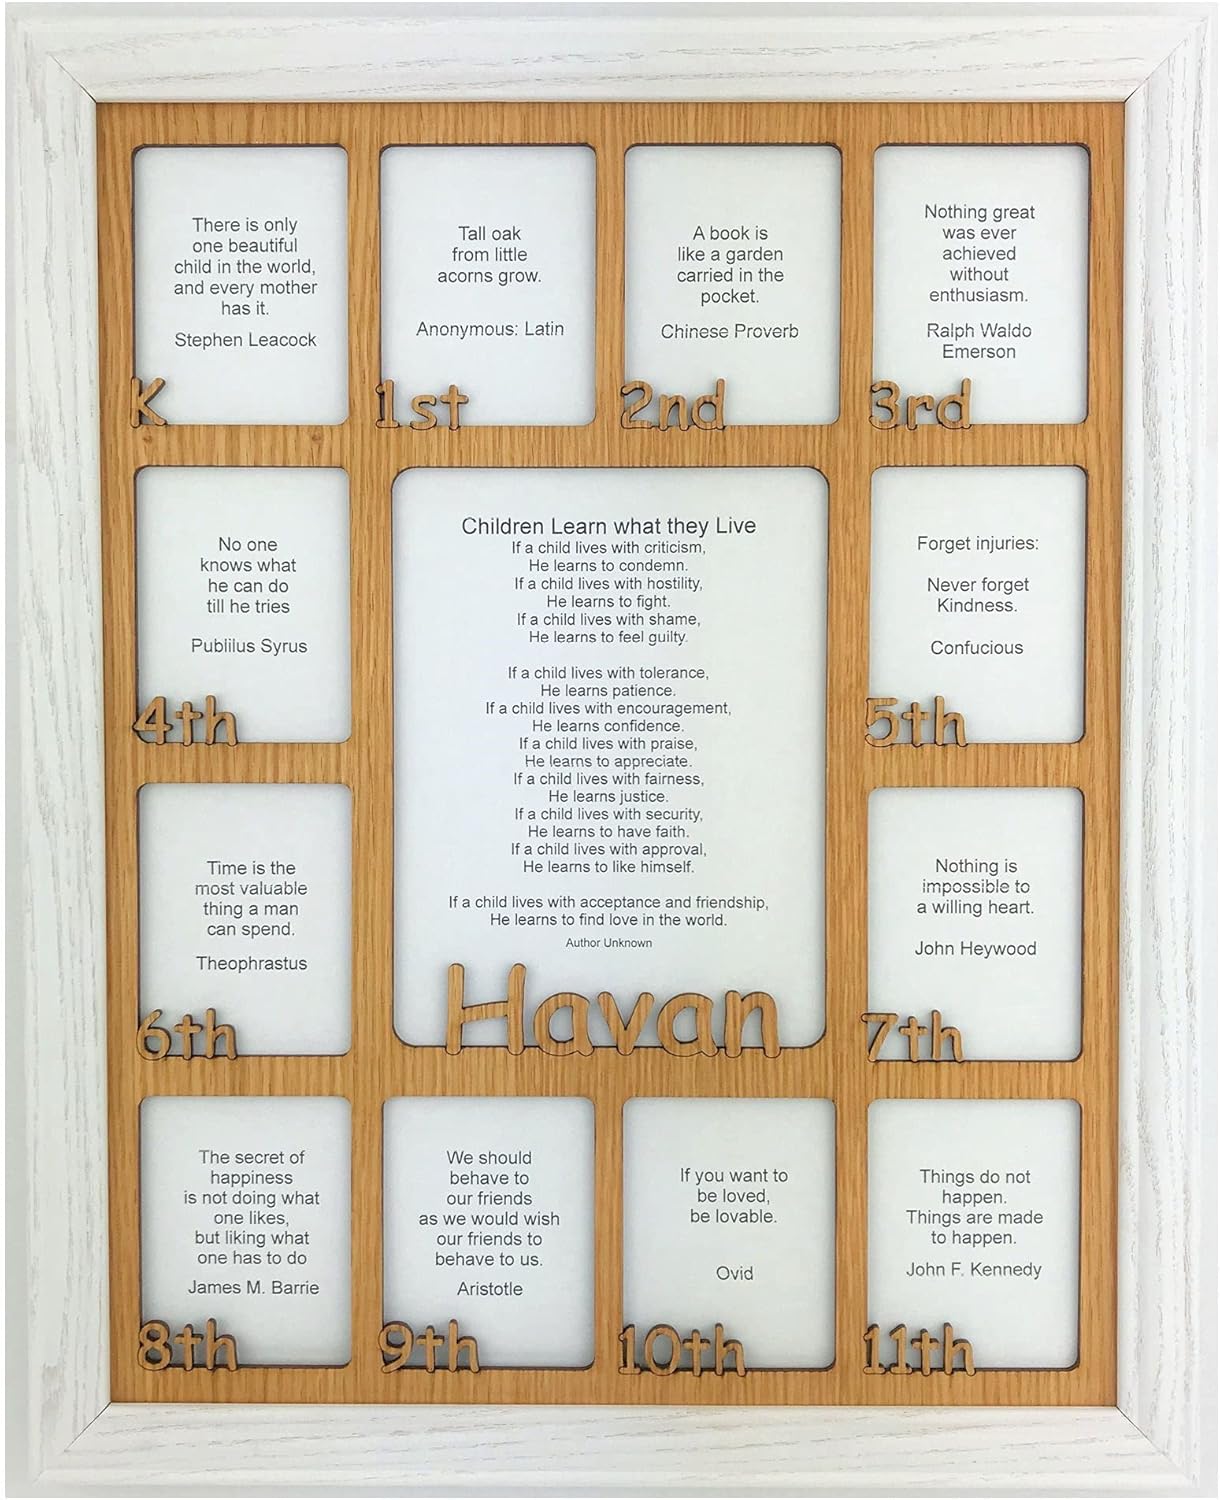 There is only
one beautiful
child in the world,
and every mother
has it.
Stephen Leacock
K
Tall oak
from little
acorns grow.
Anonymous: Latin
1st
A book is
like a garden
carried in the
pocket.
Chinese Proverb
2nd
Nothing great
was ever
achieved
without
enthusiasm.
Ralph Waldo
Emerson
3rd
No one
knows what
he can do
till he tries
Publilus Syrus
4th
Children Learn what they Live
If a child lives with criticism,
He learns to condemn.
If a child lives with hostility,
He learns to fight.
If a child lives with shame,
He learns to feel guilty.
If a child lives with tolerance,
He learns patience.
If a child lives with encouragement,
He learns confidence.
If a child lives with praise,
He learns to appreciate.
If a child lives with fairness,
He learns justice.
If a child lives with security,
He learns to have faith.
If a child lives with approval,
He learns to like himself.
If a child lives with acceptance and friendship,
He learns to find love in the world.
Author Unknown
Havan
Forget injuries:
Never forget
Kindness.
Confucious
5th
Time is the
most valuable
thing a man
can spend.
Theophrastus
6th
Nothing is
impossible to
a willing heart.
John Heywood
7th
The secret of
happiness
is not doing what
one likes,
but liking what
one has to do
James M. Barrie
8th
We should
behave to
our friends
as we would wish
our friends to
behave to us.
Aristotle
9th
If you want to
be loved,
be lovable.
Ovid
10th
Things do not
happen.
Things are made
to happen.
John F. Kennedy
11th